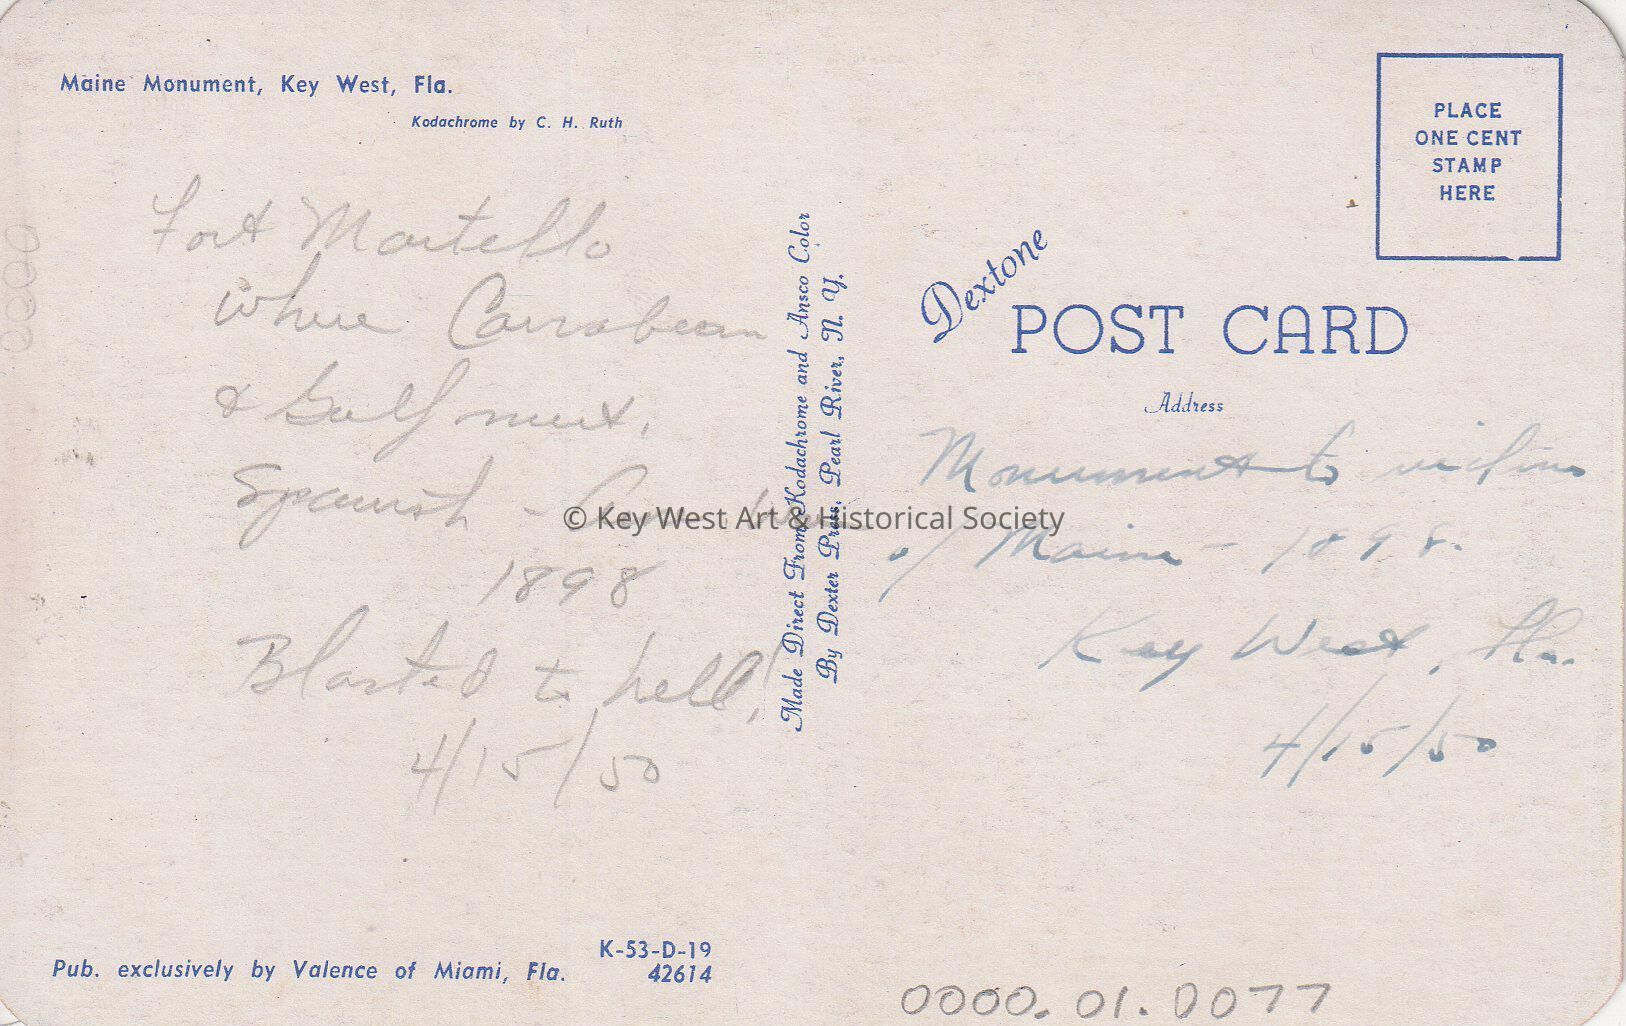 Maine Monument, Key West, Fla.
Kodachrome by C. H. Ruth
Fort Martello
where Carrabean
& Gulf meet.
Spanish - Am. War
1898
Blasted to hell!
4/15/50
Pub. exclusively by Valence of Miami, Fla.
K-53-D-19
42614
Made Direct From Kodachrome and Ansco Color
By Dexter Press, Pearl River, N. Y.
© Key West Art & Historical Society
PLACE
ONE CENT
STAMP
HERE
Dextone
POST CARD
Address
Monument to victims
of Maine - 1898.
Key West, Fla.
4/15/50
0000.01.0077